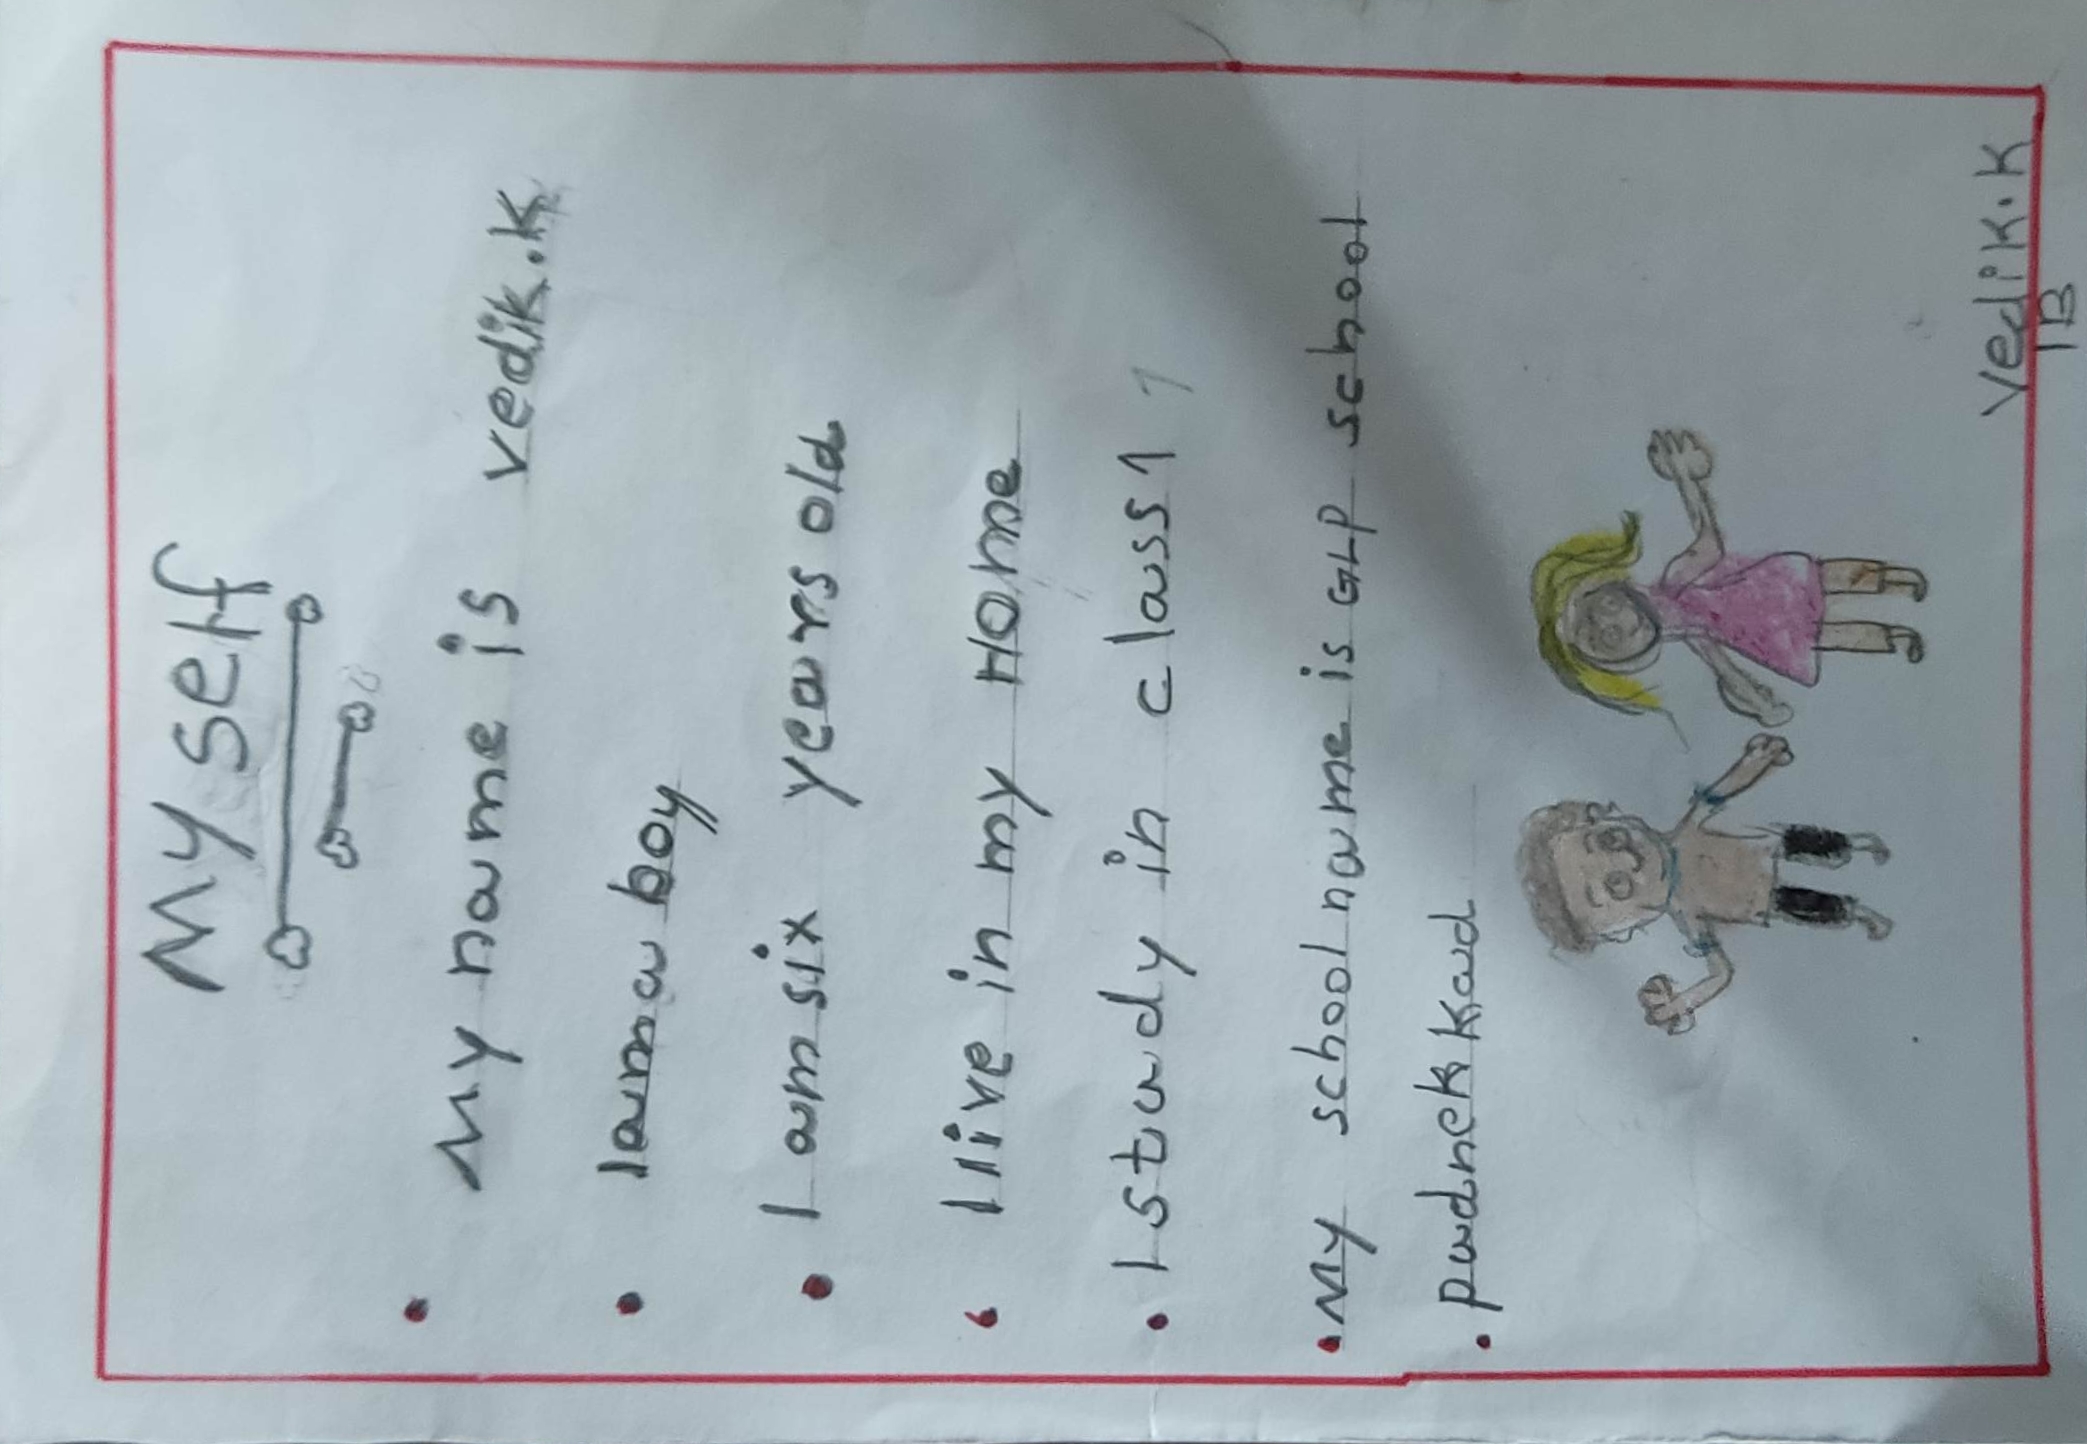 My self
My name is vedik.K
I am a boy
I am six years old
I live in my Home
I study in class 1
My school name is GLP school
padnekkad
Vedik.K
1B